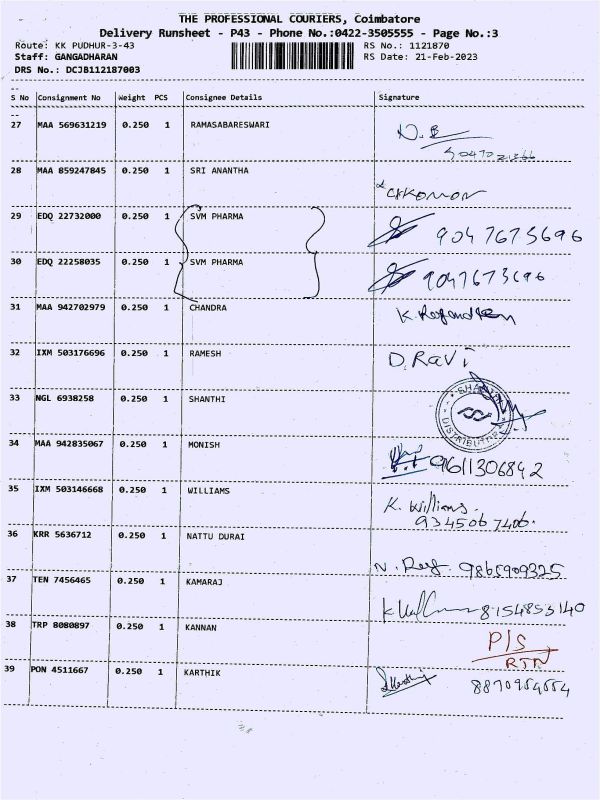 THE PROFESSIONAL COURIERS, Coimbatore
Delivery Runsheet - P43 - Phone No.:0422-3505555 - Page No.:3
Route: KK PUDHUR-3-43 RS No.: 1121870
Staff: GANGADHARAN RS Date: 21-Feb-2023
DRS No.: DCJB112187003
S No Consignment No Weight PCS Consignee Details Signature
27 MAA 569631219 0.250 1 RAMASABARESWARI
28 MAA 859247845 0.250 1 SRI ANANTHA
29 EDQ 22732000 0.250 1 SVM PHARMA 9047673696
30 EDQ 22258035 0.250 1 SVM PHARMA 9047673696
31 MAA 942702979 0.250 1 CHANDRA
32 IXM 503176696 0.250 1 RAMESH D.RaVi
33 NGL 6938258 0.250 1 SHANTHI
34 MAA 942835067 0.250 1 MONISH 9611306842
35 IXM 503146668 0.250 1 WILLIAMS K. Williams.
9345067406.
36 KRR 5636712 0.250 1 NATTU DURAI
9865909325
37 TEN 7456465 0.250 1 KAMARAJ
8154853140
38 TRP 8080897 0.250 1 KANNAN P/S
RTN
39 PON 4511667 0.250 1 KARTHIK